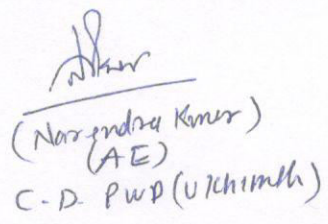 (Narendra Kumar)
(AE)
C.D. PWD (Ukhimath)